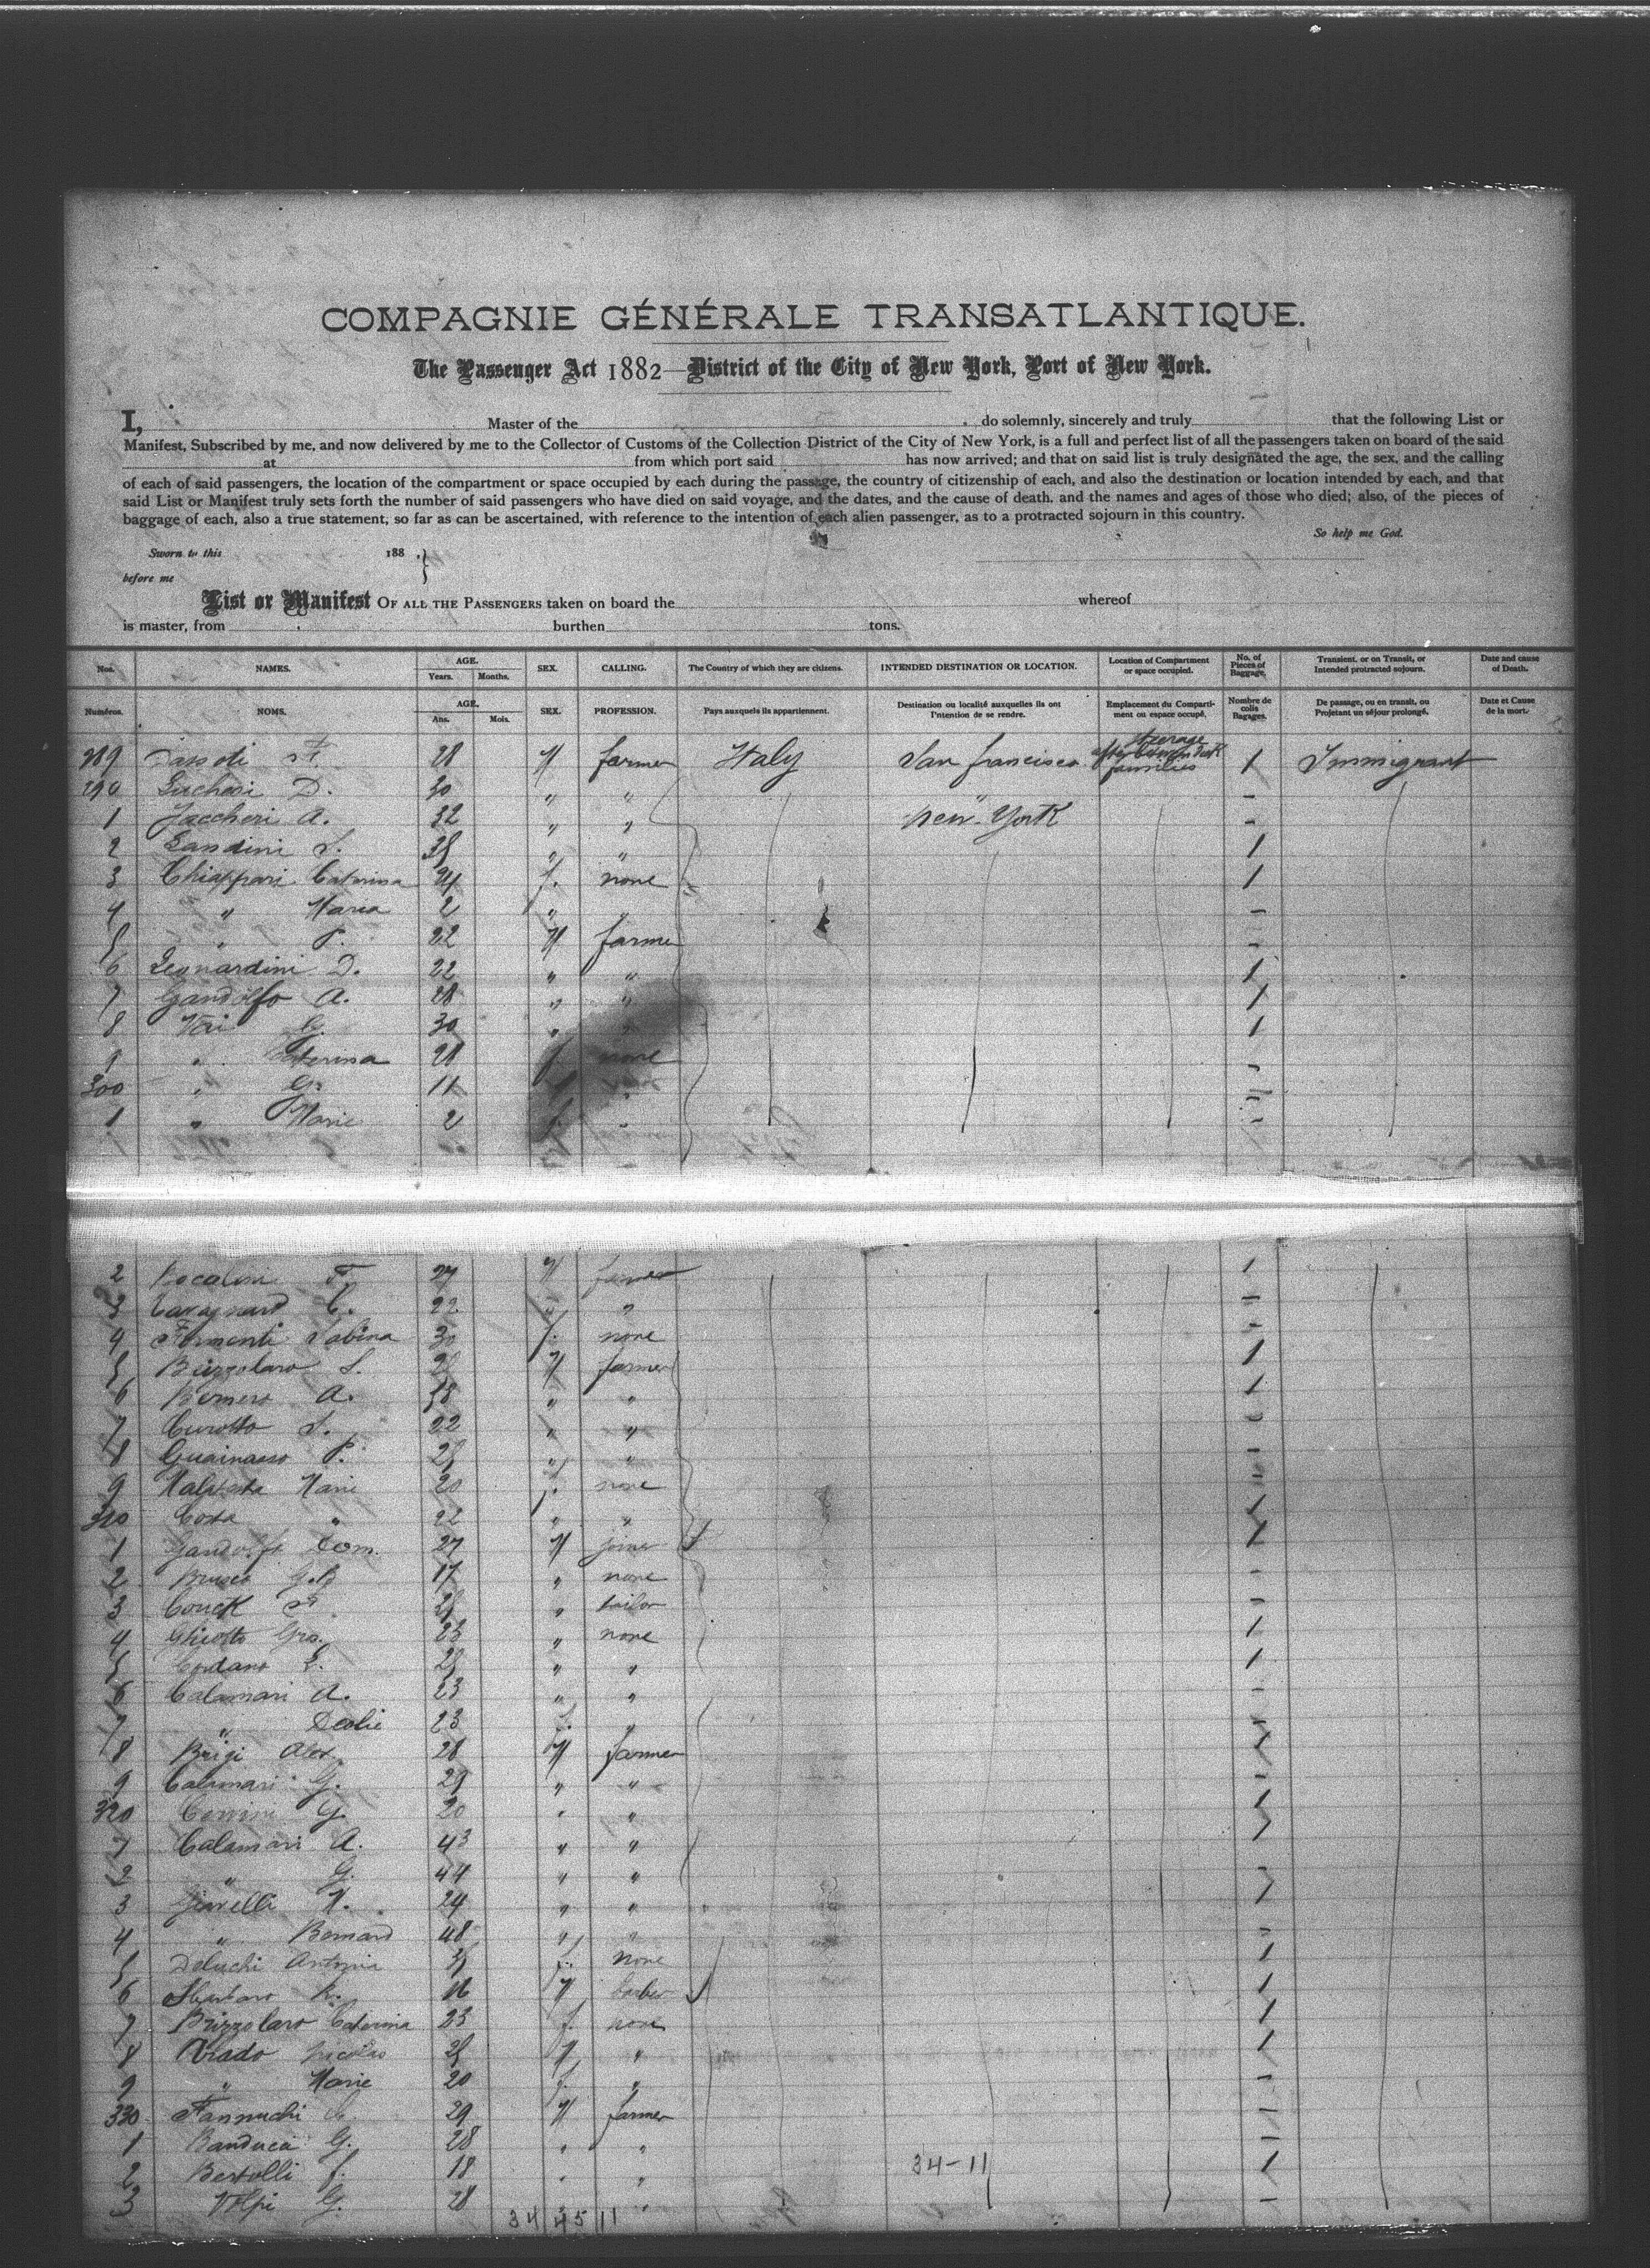 COMPAGNIE GÉNÉRALE TRANSATLANTIQUE.
The Passenger Act 1882—District of the City of New York, Port of New York.
I, Master of the do solemnly, sincerely and truly that the following List or
Manifest, Subscribed by me, and now delivered by me to the Collector of Customs of the Collection District of the City of New York, is a full and perfect list of all the passengers taken on board of the said
at from which port said has now arrived; and that on said list is truly designated the age, the sex, and the calling
of each of said passengers, the location of the compartment or space occupied by each during the passage, the country of citizenship of each, and also the destination or location intended by each, and that
said List or Manifest truly sets forth the number of said passengers who have died on said voyage, and the dates, and the cause of death, and the names and ages of those who died; also, of the pieces of
baggage of each, also a true statement, so far as can be ascertained, with reference to the intention of each alien passenger, as to a protracted sojourn in this country.
So help me God.
Sworn to this 188 .}
before me
List or Manifest OF ALL THE PASSENGERS taken on board the whereof
is master, from burthen tons.
Nos. NAMES. AGE. Years. Months. SEX. CALLING. The Country of which they are citizens. INTENDED DESTINATION OR LOCATION. Location of Compartment or space occupied. No. of Pieces of Baggage. Transient, or on Transit, or Intended protracted sojourn. Date and cause of Death.
Numéros. NOMS. AGE. Ans. Mois. SEX. PROFESSION. Pays auxquels ils appartiennent. Destination ou localité auxquelles ils ont l'intention de se rendre. Emplacement du Compartiment ou espace occupé. Nombre de colis Bagages. De passage, ou en transit, ou Projetant un séjour prolongé. Date et Cause de la mort.
289 28 M farmer Italy San francisco steerage families 1 Immigrant
290 Luchesi D. 30 " " -
1 Jaccheri A. 32 " " New-York -
2 Landini S. " " 1
3 Chiappari Caterina f. none 1
4 " Maria 2 " " -
5 " P. 22 M farmer -
6 Leonardini D. 22 " " 1
7 Gandolfo A. 28 " " 1
8 G. 30 " " 1
9 " Caterina 28 f. none -
300 " G. 11 -
1 " Marie 2 f. " -
2 F. 27 M farmer 1
3 C. 22 " " -
4 Formenti Sabina 30 f. none -
5 Brizzolaro S. M farmer 1
6 A. 38 " " 1
7 Curotto S. 22 " " -
8 P. " " -
9 Malatesta Marie 20 f. none -
310 Costa " 22 " " 1
1 Gandolfo Dom. 27 M joiner 1
2 Brusco G.B 17 " none -
3 " tailor -
4 Ghiotto Gio. 23 " none 1
5 " " 1
6 Calamari A. 23 " " -
7 " 23 f. " -
8 Brigi Alex. 28 M farmer 1
9 Calamari G. 29 " " -
320 G. 20 " " 1
1 Calamari A. 43 " " 1
2 " G. 44 " " -
3 M. 24 " " 1
4 " Bernard 48 " " -
5 Deluchi Antonia f. none 1
6 Sbarbaro 16 M barber 1
7 Brizzolaro Caterina 23 f. none 1
8 Nicolas M " 1
9 " Marie 20 f. " -
330 Fannuchi 29 M farmer -
1 Banducci G. 28 " " -
2 Bertolli f. 18 " " 34-11 1
3 Volpi G. 28 " -
34 45 11